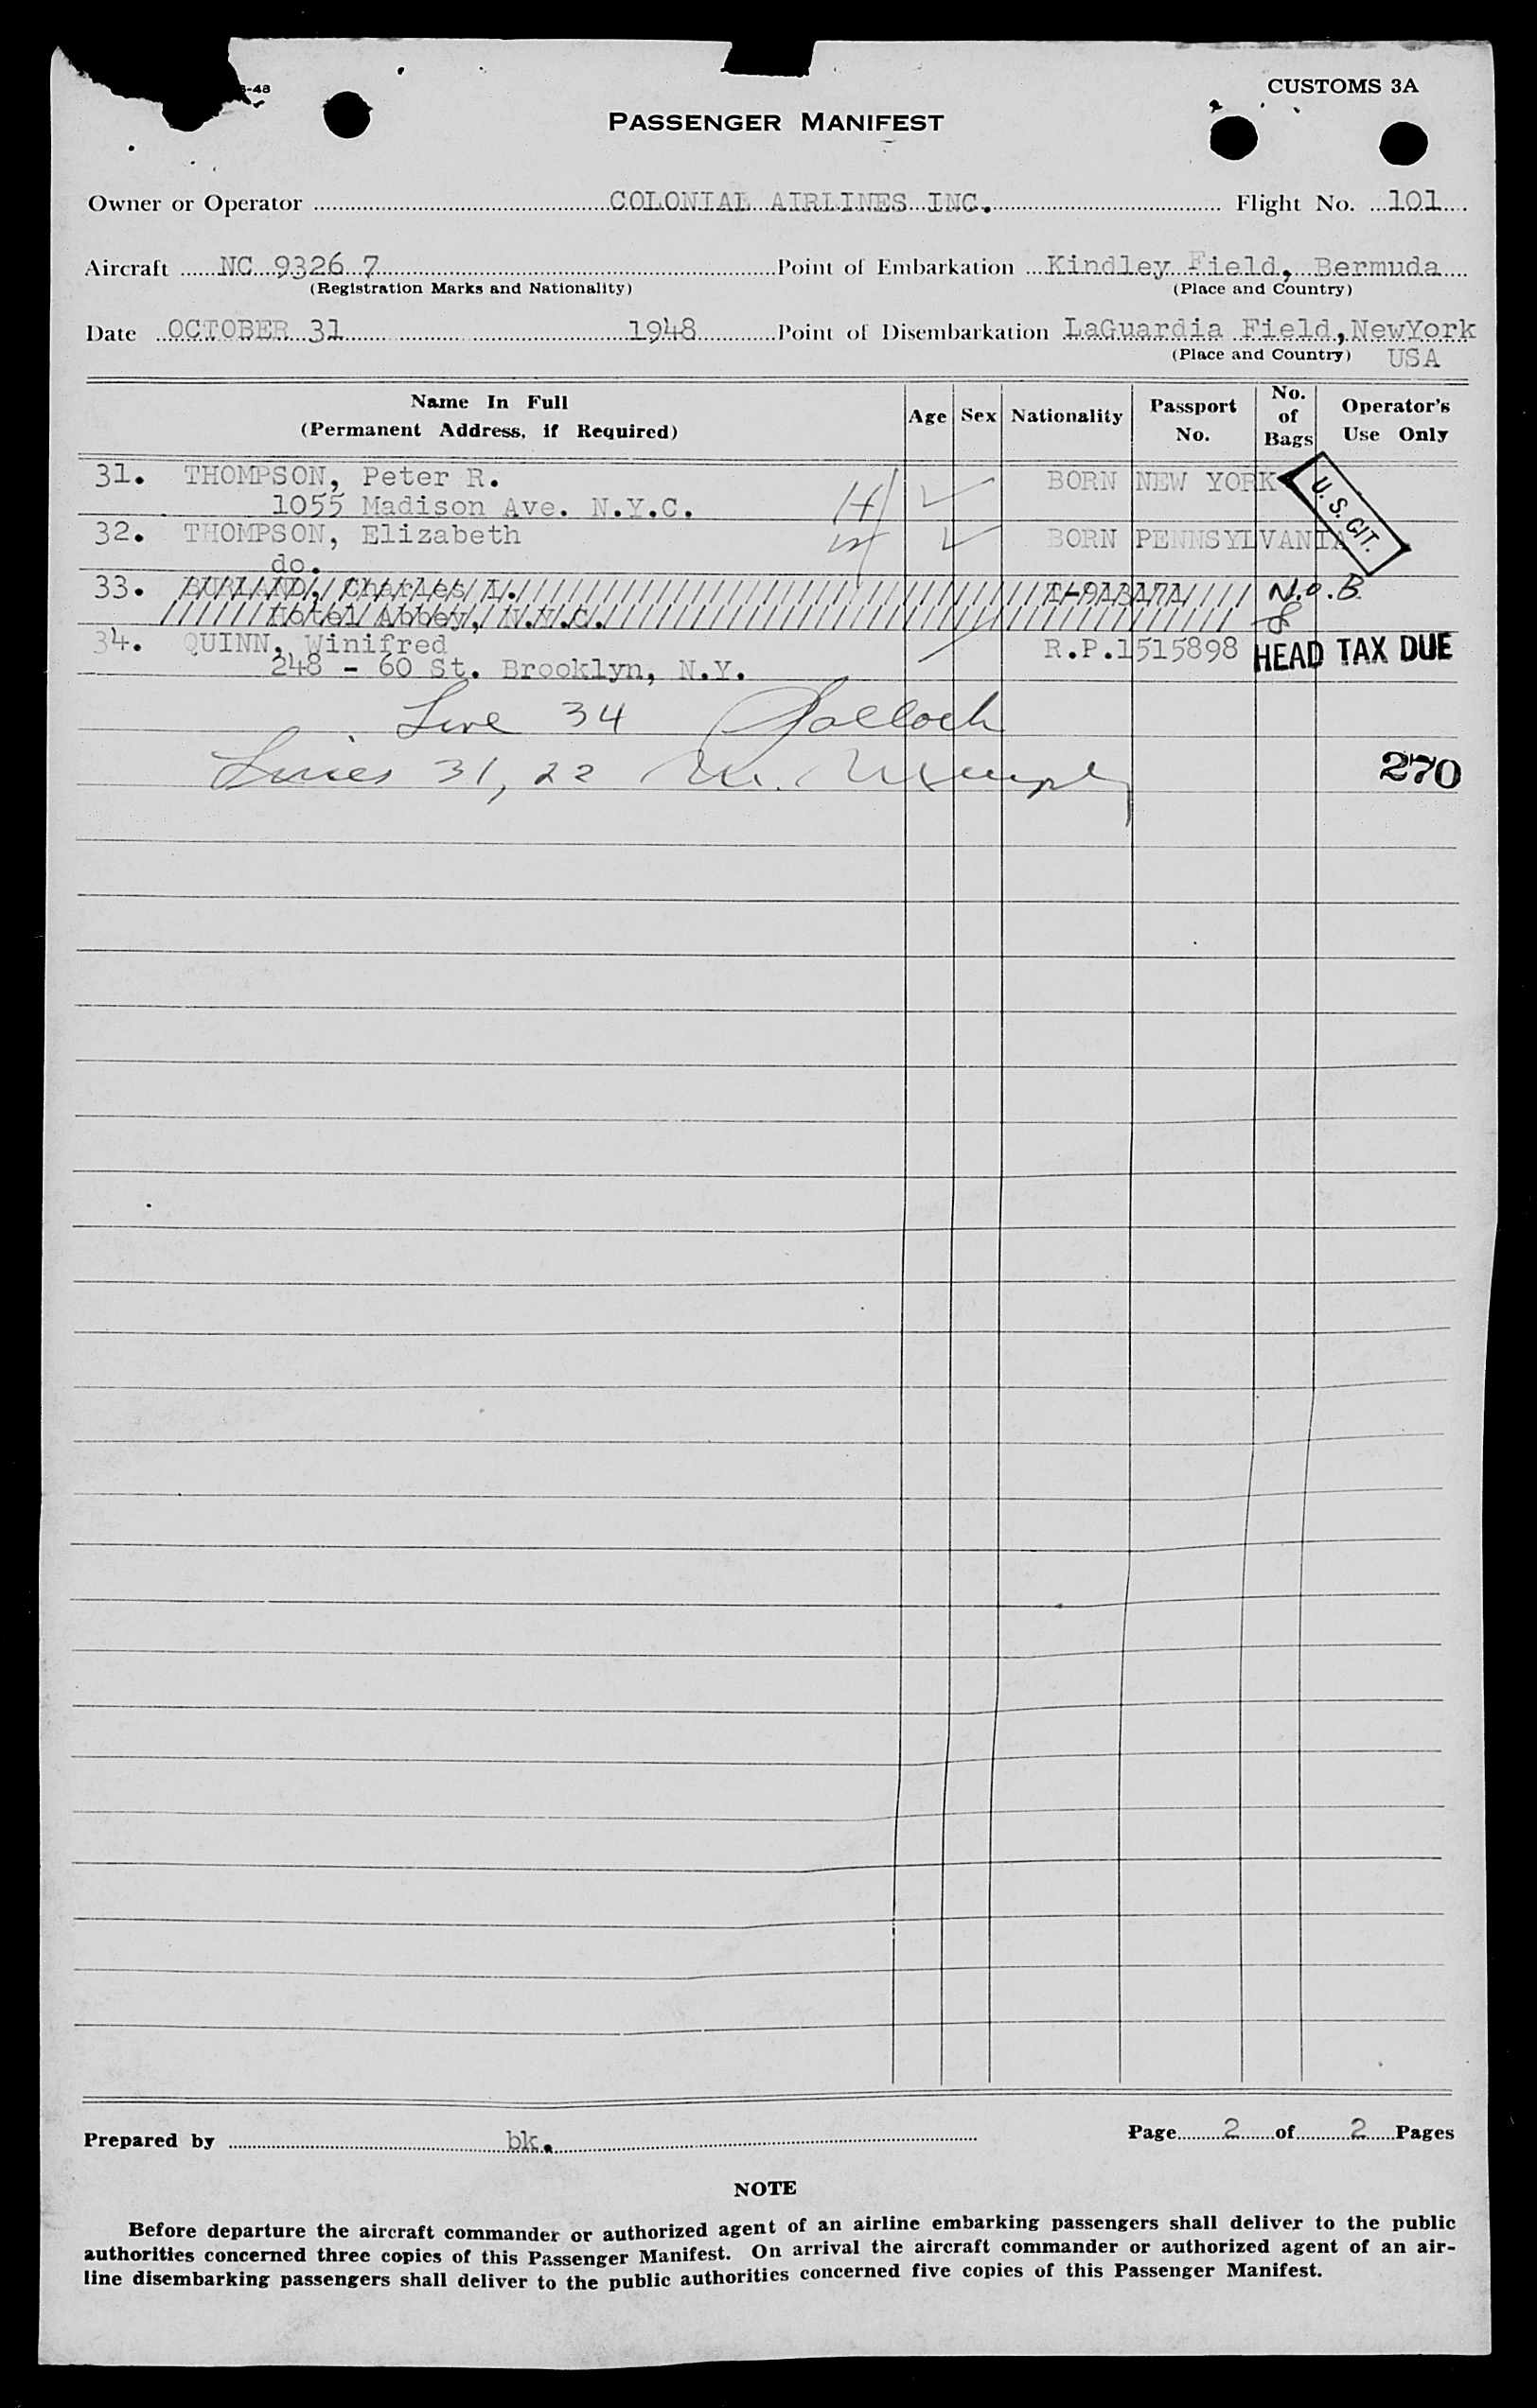 -48
CUSTOMS 3A
PASSENGER MANIFEST
Owner or Operator COLONIAL AIRLINES INC. Flight No. 101
Aircraft NC 9326 7 Point of Embarkation Kindley Field, Bermuda
(Registration Marks and Nationality) (Place and Country)
Date OCTOBER 31 1948 Point of Disembarkation LaGuardia Field, NewYork
(Place and Country) USA
Name In Full (Permanent Address, if Required) Age Sex Nationality Passport No. No. of Bags Operator's Use Only
31. THOMPSON, Peter R. BORN NEW YORK
U. S. CIT.
1055 Madison Ave. N.Y.C.
32. THOMPSON, Elizabeth BORN PENNSYLVANIA
do.
33. Charles I. N.o.B.
Hotel Abbey, N.Y.C.
34. QUINN, Winifred R.P.1515898 HEAD TAX DUE
248 - 60 St. Brooklyn, N.Y.
Line 34
Lines 31, 22
270
Prepared by bk. Page 2 of 2 Pages
NOTE
Before departure the aircraft commander or authorized agent of an airline embarking passengers shall deliver to the public
authorities concerned three copies of this Passenger Manifest. On arrival the aircraft commander or authorized agent of an air-
line disembarking passengers shall deliver to the public authorities concerned five copies of this Passenger Manifest.